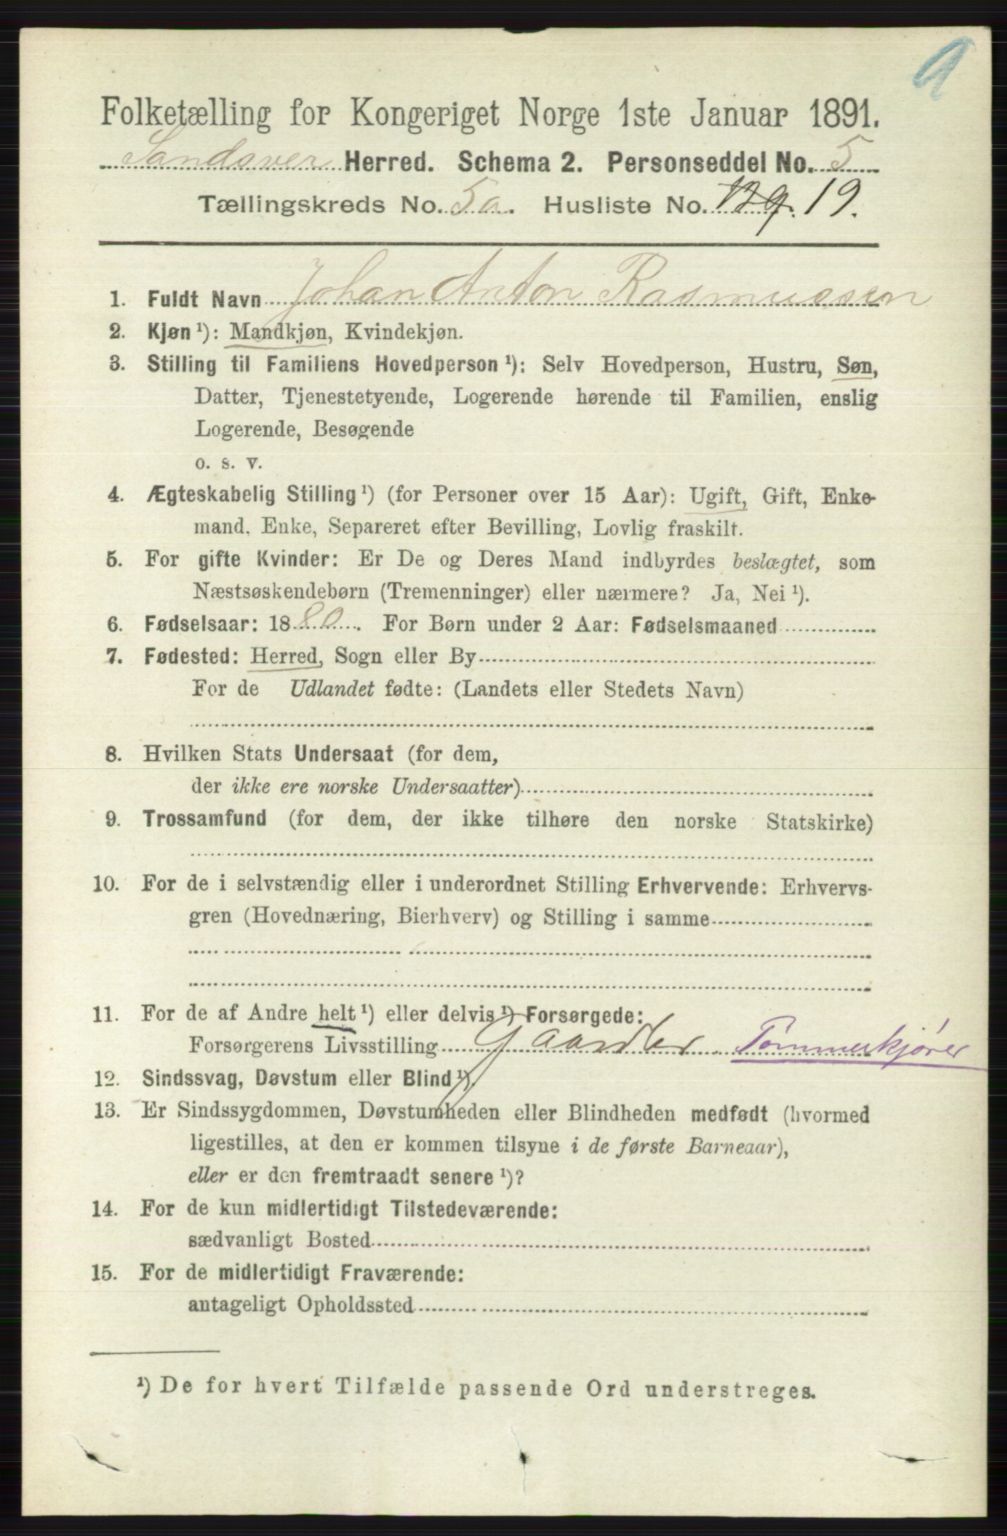 9
Folketælling for Kongeriget Norge 1ste Januar 1891.
Sandsver Herred. Schema 2. Personseddel No. 5
Tællingskreds No. 5a. Husliste No. 129. 19.
1. Fuldt Navn Johan Anton Rasmussen
2. Kjøn ¹): Mandkjøn, Kvindekjøn.
3. Stilling til Familiens Hovedperson ¹): Selv Hovedperson, Hustru, Søn,
Datter, Tjenestetyende, Logerende hørende til Familien, enslig
Logerende, Besøgende
o. s. v.
4. Ægteskabelig Stilling ¹) (for Personer over 15 Aar): Ugift, Gift, Enke-
mand, Enke, Separeret efter Bevilling, Lovlig fraskilt.
5. For gifte Kvinder: Er De og Deres Mand indbyrdes beslægtet, som
Næstsøskendebørn (Tremenninger) eller nærmere? Ja, Nei ¹).
6. Fødselsaar: 1880. For Børn under 2 Aar: Fødselsmaaned
7. Fødested: Herred, Sogn eller By
For de Udlandet fødte: (Landets eller Stedets Navn)
8. Hvilken Stats Undersaat (for dem,
der ikke ere norske Undersaatter)
9. Trossamfund (for dem, der ikke tilhøre den norske Statskirke)
10. For de i selvstændig eller i underordnet Stilling Erhvervende: Erhvervs-
gren (Hovednæring, Bierhverv) og Stilling i samme
11. For de af Andre helt ¹) eller delvis ¹) Forsørgede:
Forsørgerens Livsstilling Gaardbr. Tømmerkjører
12. Sindssvag, Døvstum eller Blind ¹).
13. Er Sindssygdommen, Døvstumheden eller Blindheden medfødt (hvormed
ligestilles, at den er kommen tilsyne i de første Barneaar),
eller er den fremtraadt senere ¹)?
14. For de kun midlertidigt Tilstedeværende:
sædvanligt Bosted
15. For de midlertidigt Fraværende:
antageligt Opholdssted
¹) De for hvert Tilfælde passende Ord understreges.